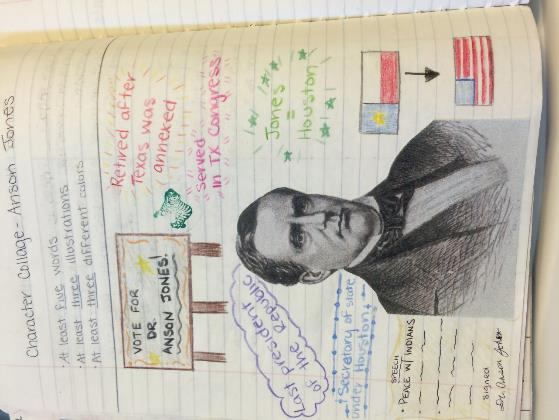 Character Collage - Anson Jones
· At least five words
· At least three illustrations
· At least three different colors
Retired after
Texas was
annexed
"served"
in TX Congress
Jones
=
Houston
VOTE FOR
DR.
ANSON JONES!
Last president
of the Republic
Secretary of state
under Houston
SPEECH
PEACE W/ INDIANS
SIGNED
Dr. Anson Jones